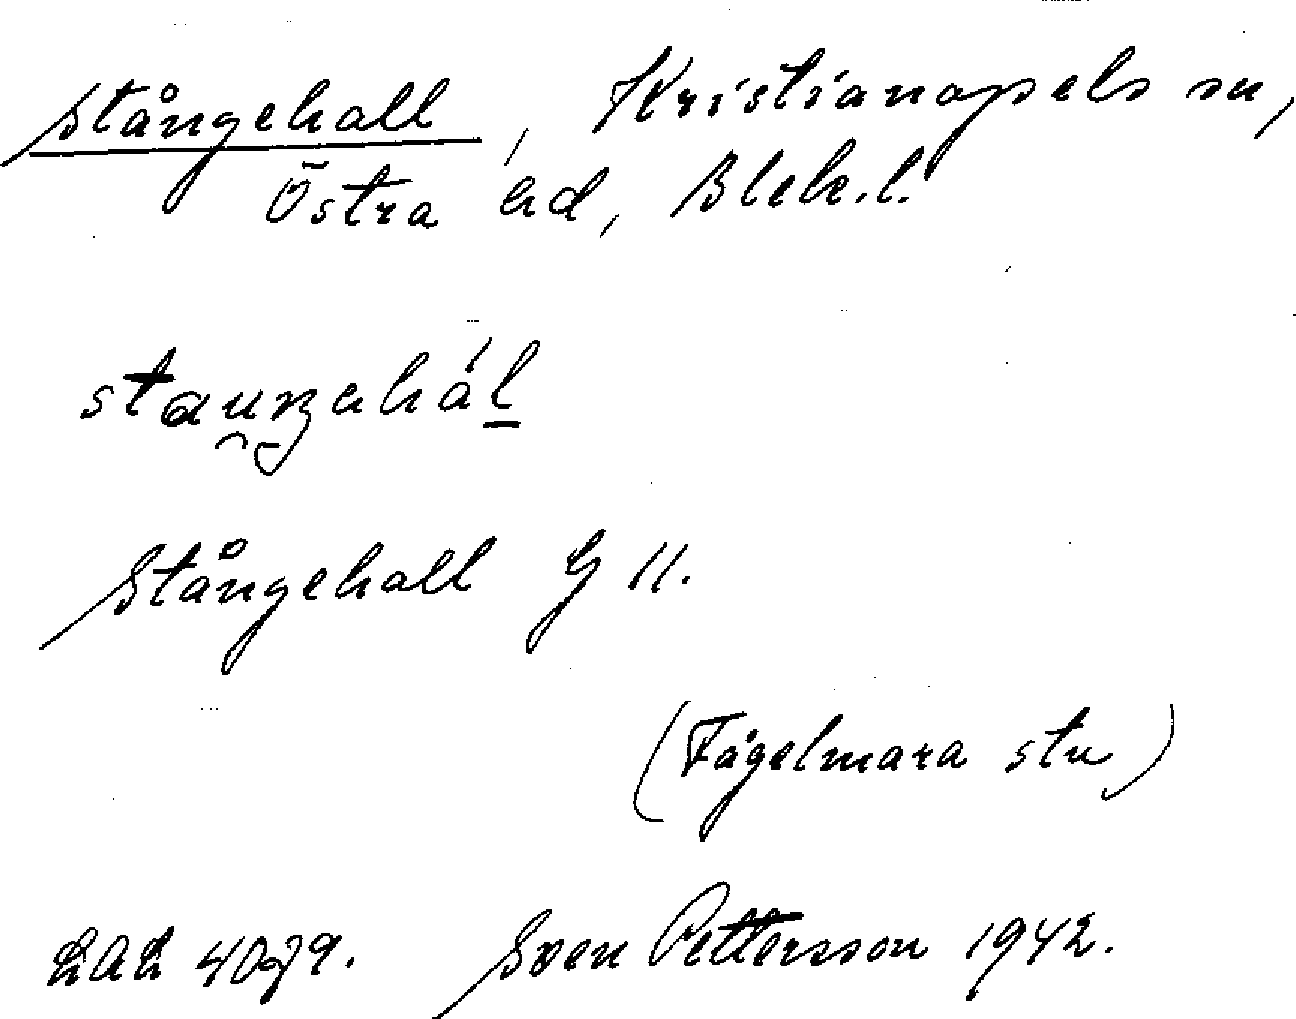 Stångehall, Kristianopels sn,
Östra hd, Blek.l.
Stångehall G 11.
(Fågelmara stn)
Sven Pettersson 1942.